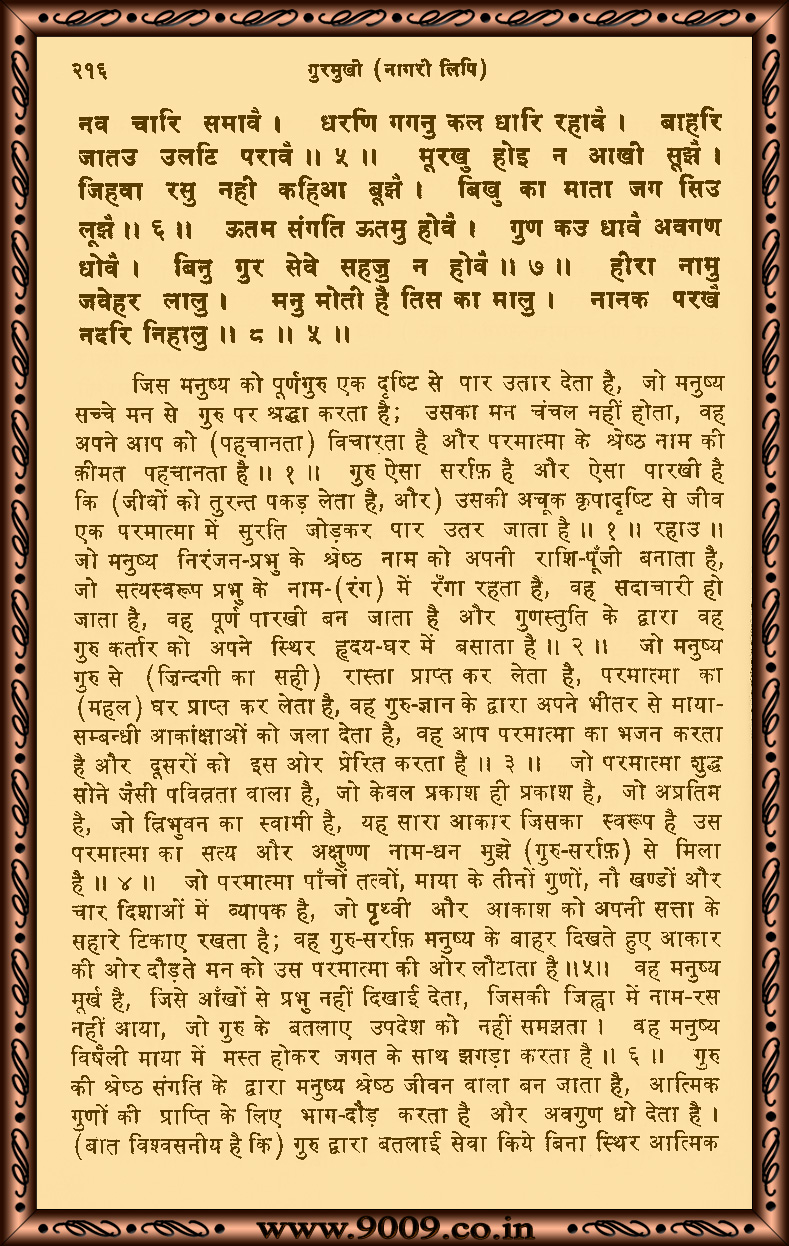 २१६ गुरमुखी (नागरी लिपि)
नव चारि समावै। धरणि गगनु कल धारि रहावै। बाहरि
जातउ उलटि परावै॥ ५ ॥ मूरखु होइ न आखी सूझै।
जिहवा रसु नही कहिआ बूझै। बिखु का माता जग सिउ
लूझै॥ ६ ॥ ऊतम संगति ऊतमु होवै। गुण कउ धावै अवगण
धोवै। बिनु गुर सेवे सहजु न होवै॥ ७ ॥ हीरा नामु
जवेहर लालु। मनु मोती है तिस का मालु। नानक परखै
नदरि निहालु॥ ८ ॥ ५ ॥
जिस मनुष्य को पूर्णगुरु एक दृष्टि से पार उतार देता है, जो मनुष्य
सच्चे मन से गुरु पर श्रद्धा करता है; उसका मन चंचल नहीं होता, वह
अपने आप को (पहचानता) विचारता है और परमात्मा के श्रेष्ठ नाम की
क़ीमत पहचानता है॥ १ ॥ गुरु ऐसा सर्राफ़ है और ऐसा पारखी है
कि (जीवों को तुरन्त पकड़ लेता है, और) उसकी अचूक कृपादृष्टि से जीव
एक परमात्मा में सुरति जोड़कर पार उतर जाता है॥ १ ॥ रहाउ ॥
जो मनुष्य निरंजन-प्रभु के श्रेष्ठ नाम को अपनी राशि-पूँजी बनाता है,
जो सत्यस्वरूप प्रभु के नाम-(रंग) में रँगा रहता है, वह सदाचारी हो
जाता है, वह पूर्ण पारखी बन जाता है और गुणस्तुति के द्वारा वह
गुरु कर्तार को अपने स्थिर हृदय-घर में बसाता है॥ २ ॥ जो मनुष्य
गुरु से (ज़िन्दगी का सही) रास्ता प्राप्त कर लेता है, परमात्मा का
(महल) घर प्राप्त कर लेता है, वह गुरु-ज्ञान के द्वारा अपने भीतर से माया-
सम्बन्धी आकांक्षाओं को जला देता है, वह आप परमात्मा का भजन करता
है और दूसरों को इस ओर प्रेरित करता है॥ ३ ॥ जो परमात्मा शुद्ध
सोने जैसी पवित्रता वाला है, जो केवल प्रकाश ही प्रकाश है, जो अप्रतिम
है, जो त्रिभुवन का स्वामी है, यह सारा आकार जिसका स्वरूप है उस
परमात्मा का सत्य और अक्षुण्ण नाम-धन मुझे (गुरु-सर्राफ़) से मिला
है॥ ४ ॥ जो परमात्मा पाँचों तत्वों, माया के तीनों गुणों, नौ खण्डों और
चार दिशाओं में व्यापक है, जो पृथ्वी और आकाश को अपनी सत्ता के
सहारे टिकाए रखता है; वह गुरु-सर्राफ़ मनुष्य के बाहर दिखते हुए आकार
की ओर दौड़ते मन को उस परमात्मा की ओर लौटाता है॥५॥ वह मनुष्य
मूर्ख है, जिसे आँखों से प्रभु नहीं दिखाई देता, जिसकी जिह्वा में नाम-रस
नहीं आया, जो गुरु के बतलाए उपदेश को नहीं समझता। वह मनुष्य
विषैली माया में मस्त होकर जगत के साथ झगड़ा करता है॥ ६ ॥ गुरु
की श्रेष्ठ संगति के द्वारा मनुष्य श्रेष्ठ जीवन वाला बन जाता है, आत्मिक
गुणों की प्राप्ति के लिए भाग-दौड़ करता है और अवगुण धो देता है।
(बात विश्वसनीय है कि) गुरु द्वारा बतलाई सेवा किये बिना स्थिर आत्मिक
www.9009.co.in